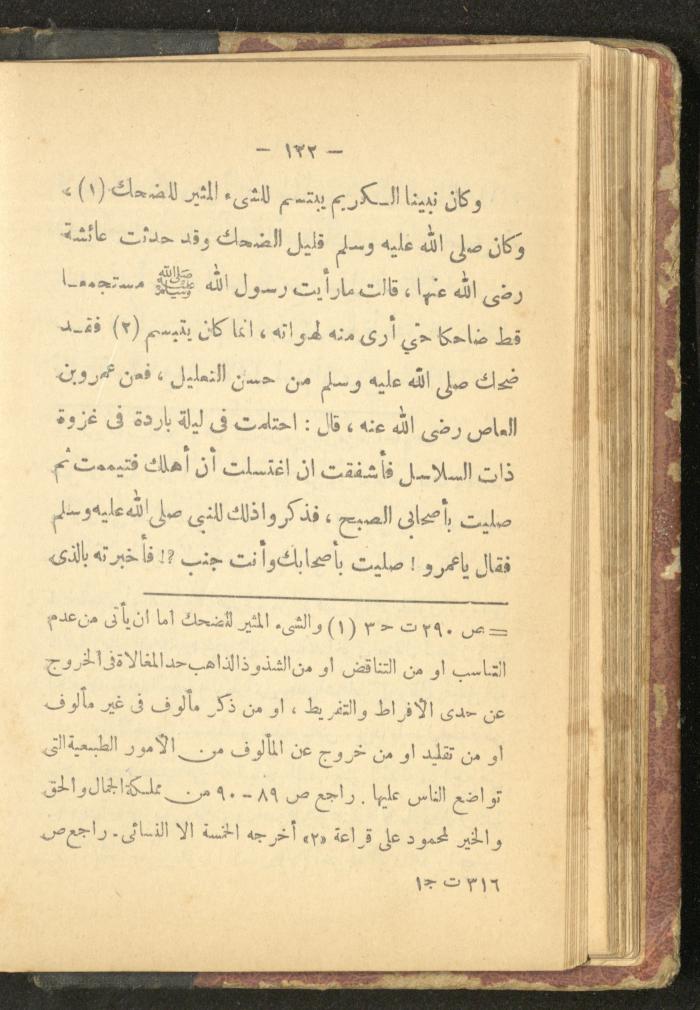 — ١٣٢ —
وكان نبينا الكريم يبتسم للشىء المثير للضحك (١) ،
وكان صلى الله عليه وسلم قليل الضحك وقد حدثت عائشة
رضى الله عنها ، قالت مارأيت رسول الله ﷺ مستجمعا
قط ضاحكا حتي أرى منه لهواته ، انما كان يتبسم (٢) فقد
ضحك صلى الله عليه وسلم من حسن التعليل ، فعن عمروبن
العاص رضى الله عنه ، قال : احتلمت فى ليلة باردة فى غزوة
ذات السلاسل فأشفقت ان اغتسلت أن أهلك فتيممت ثم
صليت بأصحابي الصبح ، فذكرواذلك للنبى صلى الله عليه وسلم
فقال ياعمرو ! صليت بأصحابك وأنت جنب ?! فأخبرته بالذى
= ص ٢٩٠ ت ح ٣ (١) والشىء المثير للضحك اما ان يأتى من عدم
التناسب او من التناقض او من الشذوذ الذاهب حد المغالاة فى الخروج
عن حدى الأفراط والتفريط ، او من ذكر مألوف فى غير مألوف
او من تقليد او من خروج عن المألوف من الأمور الطبيعية التى
تواضع الناس عليها . راجع ص ٨٩ – ٩٠ من مملكة الجمال والحق
والخير لمحمود على قراعة «٢» أخرجه الخمسة الا النسائى . راجع ص
٣١٦ ت ج١